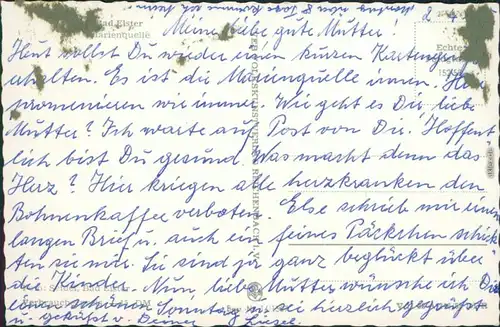 Bad Elster
Marienquelle
Meine liebe gute Mutter!
Heut sollst Du wieder einen kurzen Kartengruß
erhalten. Es ist die Marienquelle innen. Hier
promenieren wir immer. Wie geht es Dir liebe
Mutter? Ich warte auf Post von Dir. Hoffent
lich bist Du gesund. Was macht denn das
Herz? Hier kriegen alle herzkranken den
Bohnenkaffee verboten. Else schrieb mir einen
langen Brief u. auch ein feines Päckchen schick
ten sie mir. Sie sind ja ganz beglückt über
die Kinder. Nun liebe Mutter wünsche ich Dir
einen schönen Sonntag u. sei herzlich gegrüßt
u. geküßt v. Deiner Liesel.
Echte